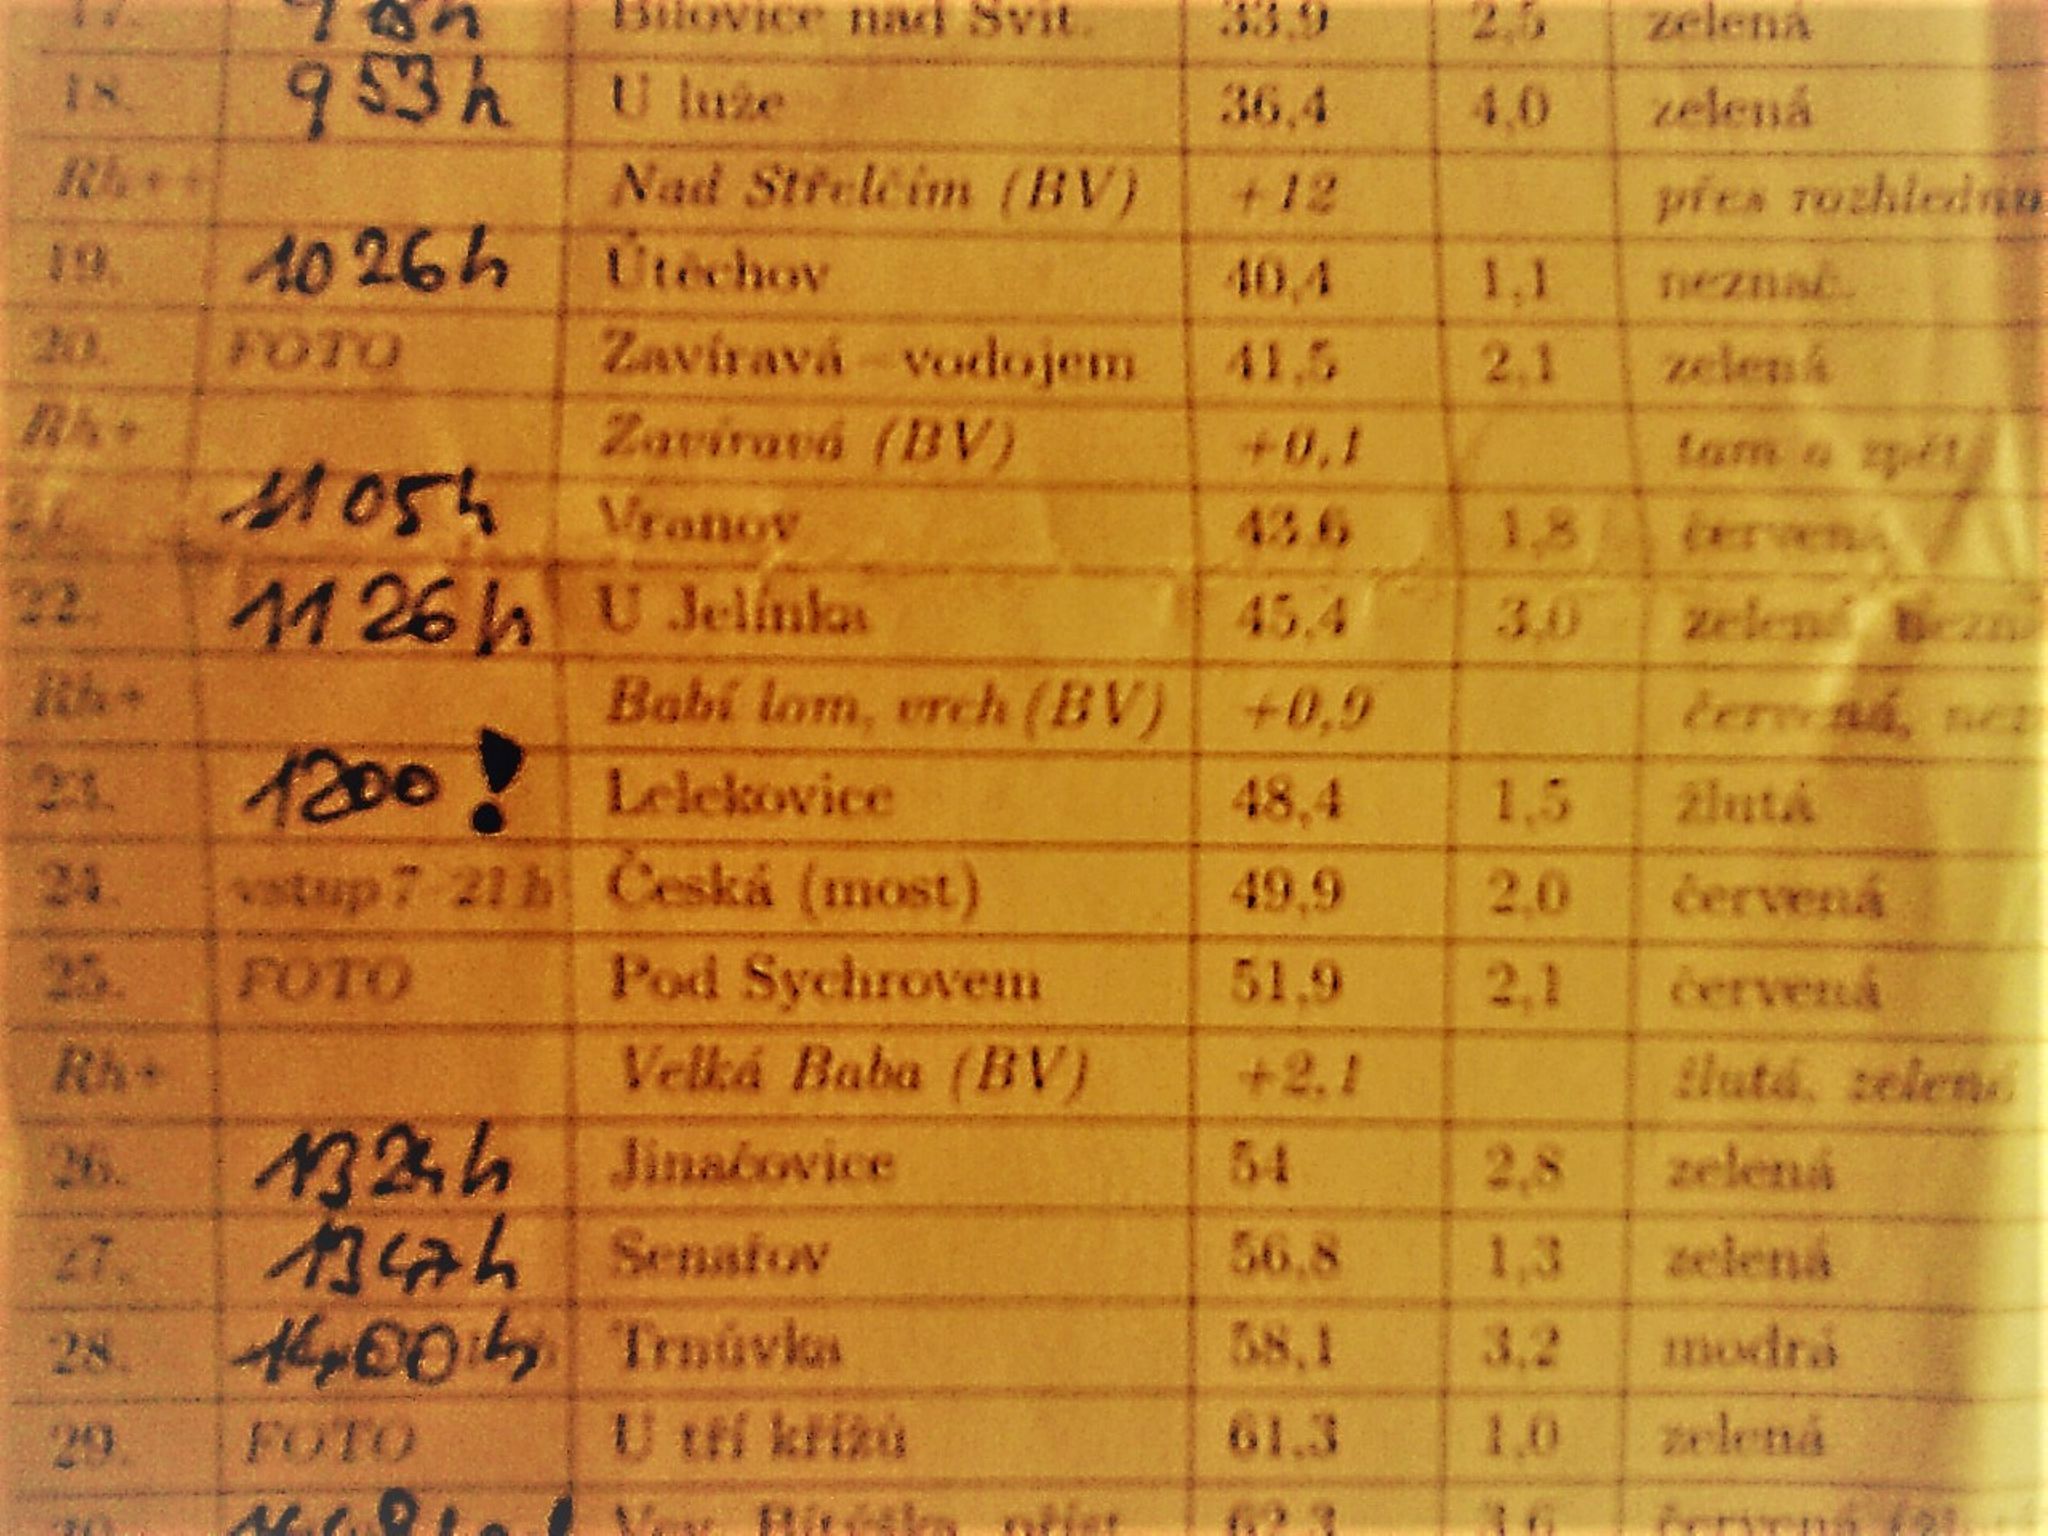 17. Bílovice nad Svit. 33,9 2,5 zelená
18. 9 53 h U luže 36,4 4,0 zelená
Rh++ Nad Střelčím (BV) +12 přes rozhlednu
19. 10 26 h Útěchov 40,4 1,1 neznač.
20. FOTO Zavíravá – vodojem 41,5 2,1 zelená
Rh+ Zavíravá (BV) +0,1 tam a zpět
21. 11 05 h Vranov 43.6 1,8 červená
22. 11 26 h U Jelínka 45,4 3,0 zelená,
Rh+ Babí lom, vrch (BV) +0,9 červená,
23. 1200 ! Lelekovice 48,4 1,5 žlutá
24. vstup 7–21 h Česká (most) 49,9 2,0 červená
25. FOTO Pod Sychrovem 51,9 2,1 červená
Rh+ Velká Baba (BV) +2,1 žlutá, zelená
26. 13 24 h Jinačovice 54 2,8 zelená
27. 13 47 h Senařov 56,8 1,3 zelená
28. 14 00 h Trnůvka 58,1 3,2 modrá
29. FOTO U tří křížů 61,3 1,0 zelená
30. Vev. Bítýška, příst. 62,3 3,6 červená